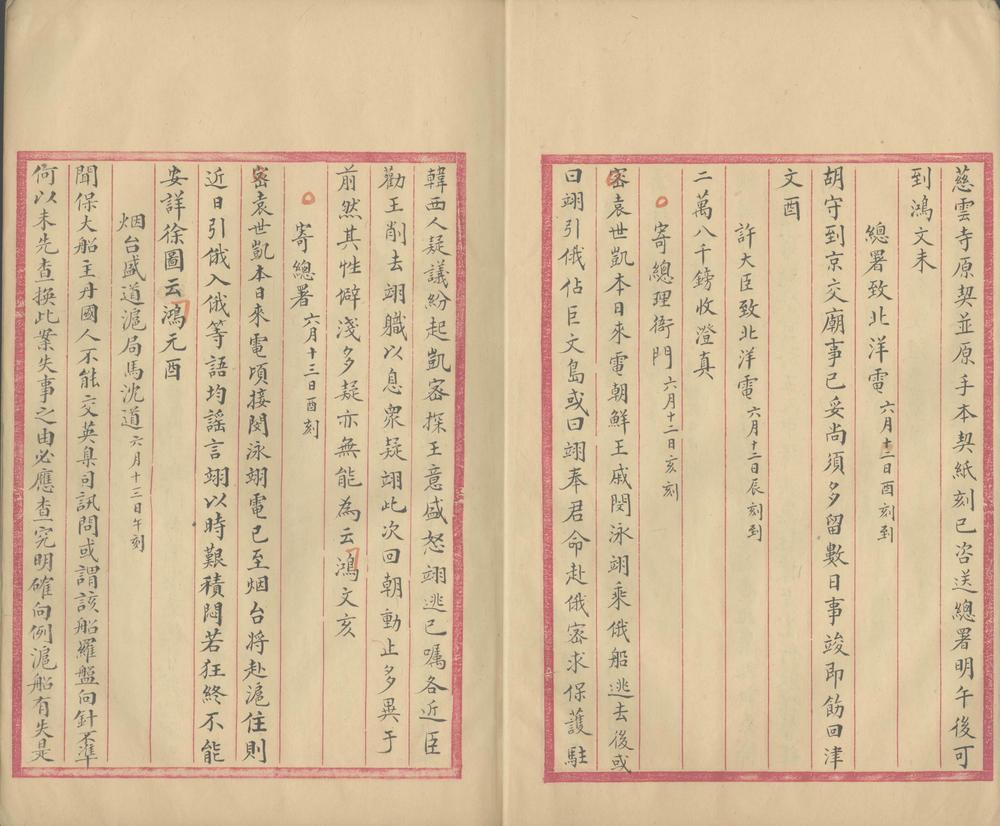 慈雲寺原契並原手本契紙刻已咨送總署明午後可
到鴻文未
總署致北洋電 六月十二日酉刻到
胡守到京交廟事已妥尚須多留數日事竣即飭回津
文酉
許大臣致北洋電 六月十二日辰刻到
二萬八千鎊收澄真
寄總理衙門 六月十二日亥刻
密袁世凱本日來電朝鮮王戚閔泳翊乘俄船逃去後或
曰翊引俄佔巨文島或曰翊奉君命赴俄密求保護駐
韓西人疑議紛起凱密探王意盛怒翊逃已囑各近臣
勸王削去翊職以息衆疑翊此次回朝動止多異于
前然其性僻淺多疑亦無能為云鴻文亥
寄總署 六月十三日酉刻
密袁世凱本日來電頃接閔泳翊電已至烟台将赴滬住則
近日引俄入俄等語均謡言翊以時艱積悶若狂終不能
安詳徐圖云鴻元酉
烟台盛道滬局馬沈道 六月十三日午刻
聞保大船主丹國人不能交英臬司訊問或謂該船羅盤向針不準
何以未先查換此案失事之由必應查究明確向例滬船有失是